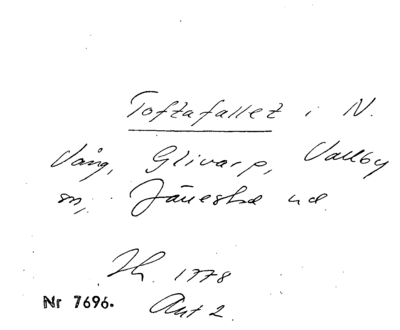 Toftafallet i N.
Vång, Glivarp, Vallby
sn, Järrestad hd
Sk. 1778
Nr 7696.
Akt 2.